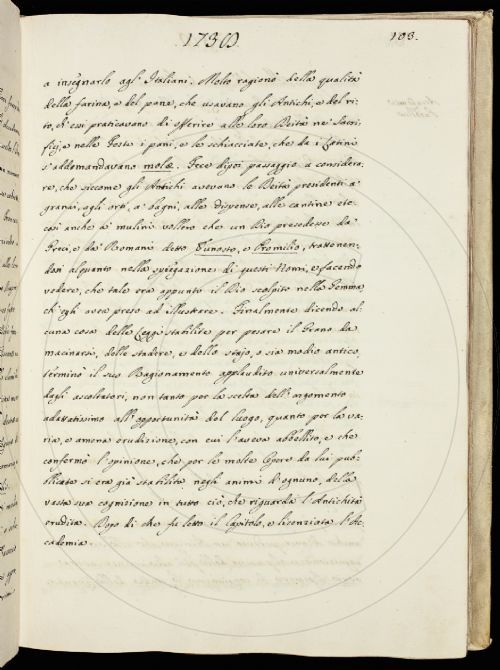 1730.
103.
a insegnarlo agl' Italiani. Molto ragionò della qualità
della farina, e del pane, che usavano gli Antichi, e del ri-
to, ch' essi praticavano di offerire alle loro Deità ne' Sacri-
fizj, e nelle Feste i pani, e le schiacciate, che da i Latini
s' addomandavano molæ. Fece dipoi passaggio a considera-
re, che siccome gli Antichi avevano le Deità presidenti a'
granai, agli orti, a' bagni, alle dispense, alle cantine etc.
così anche a' mulini vollero che un Dio presedesse da'
Greci, e da' Romani detto Eunosto, e Promilio, trattenen-
dosi alquanto nella spiegazione di questi Nomi, e facendo
vedere, che tale era appunto il Dio scolpito nella Gemma
ch' egli avea preso ad illustrare. Finalmente dicendo al-
cuna cosa delle Leggi stabilite per pesare il Grano da
macinarsi, delle stadere, e dello stajo, o sia modio antico,
terminò il suo Ragionamento applaudito universalmente
dagli ascoltatori, non tanto per la scelta dell' argomento
adattatissimo all' opportunità del luogo, quanto per la va-
ria, e amena erudizione, con cui l' aveva abbellito, e che
confermò l' opinione, che per le molte Opere da lui pub-
blicate si era già stabilita negli animi d' ognuno, della
vasta sua cognizione in tutto ciò, che riguarda l' Antichità
erudita. Dopo di che fu letto il Capitolo, e licenziata l' Ac-
cademia.